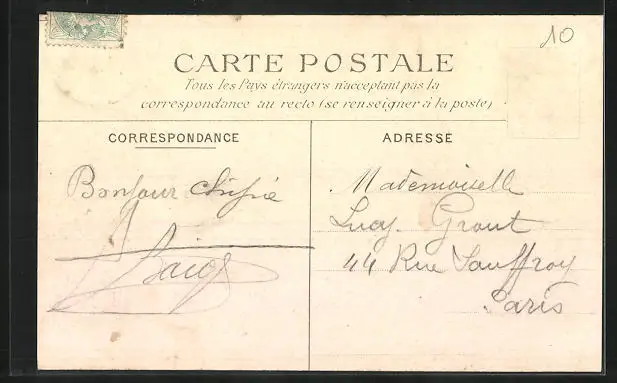 10
CARTE POSTALE
Tous les Pays étrangers n'acceptent pas la
correspondance au recto (se renseigner à la poste)
CORRESPONDANCE
ADRESSE
Bonjour
Mademoiselle
Lucy Grout
44 Rue Sauffroy
Paris